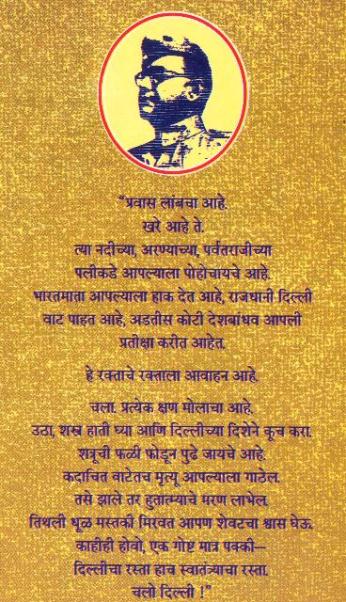 “प्रवास लांबचा आहे.
खरे आहे ते.
त्या नदीच्या, अरण्याच्या, पर्वतराजीच्या
पलीकडे आपल्याला पोहोचायचे आहे.
भारतमाता आपल्याला हाक देत आहे, राजधानी दिल्ली
वाट पाहत आहे, अडतीस कोटी देशबांधव आपली
प्रतीक्षा करीत आहेत.
हे रक्ताचे रक्ताला आवाहन आहे.
चला. प्रत्येक क्षण मोलाचा आहे.
उठा, शस्त्र हाती घ्या आणि दिल्लीच्या दिशेने कूच करा.
शत्रूची फळी फोडून पुढे जायचे आहे.
कदाचित वाटेतच मृत्यू आपल्याला गाठेल.
तसे झाले तर हुतात्म्याचे मरण लाभेल.
तिथली धूळ मस्तकी मिरवत आपण शेवटचा श्वास घेऊ.
काहीही होवो, एक गोष्ट मात्र पक्की—
दिल्लीचा रस्ता हाच स्वातंत्र्याचा रस्ता.
चलो दिल्ली !”